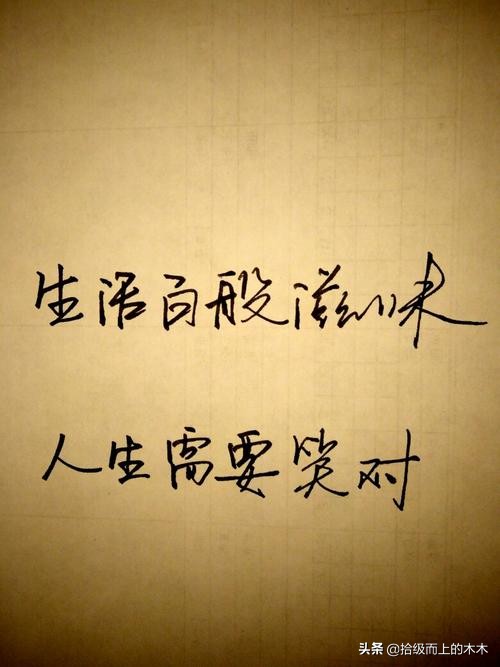 生活百般滋味
人生需要笑对
头条 @拾级而上的木木